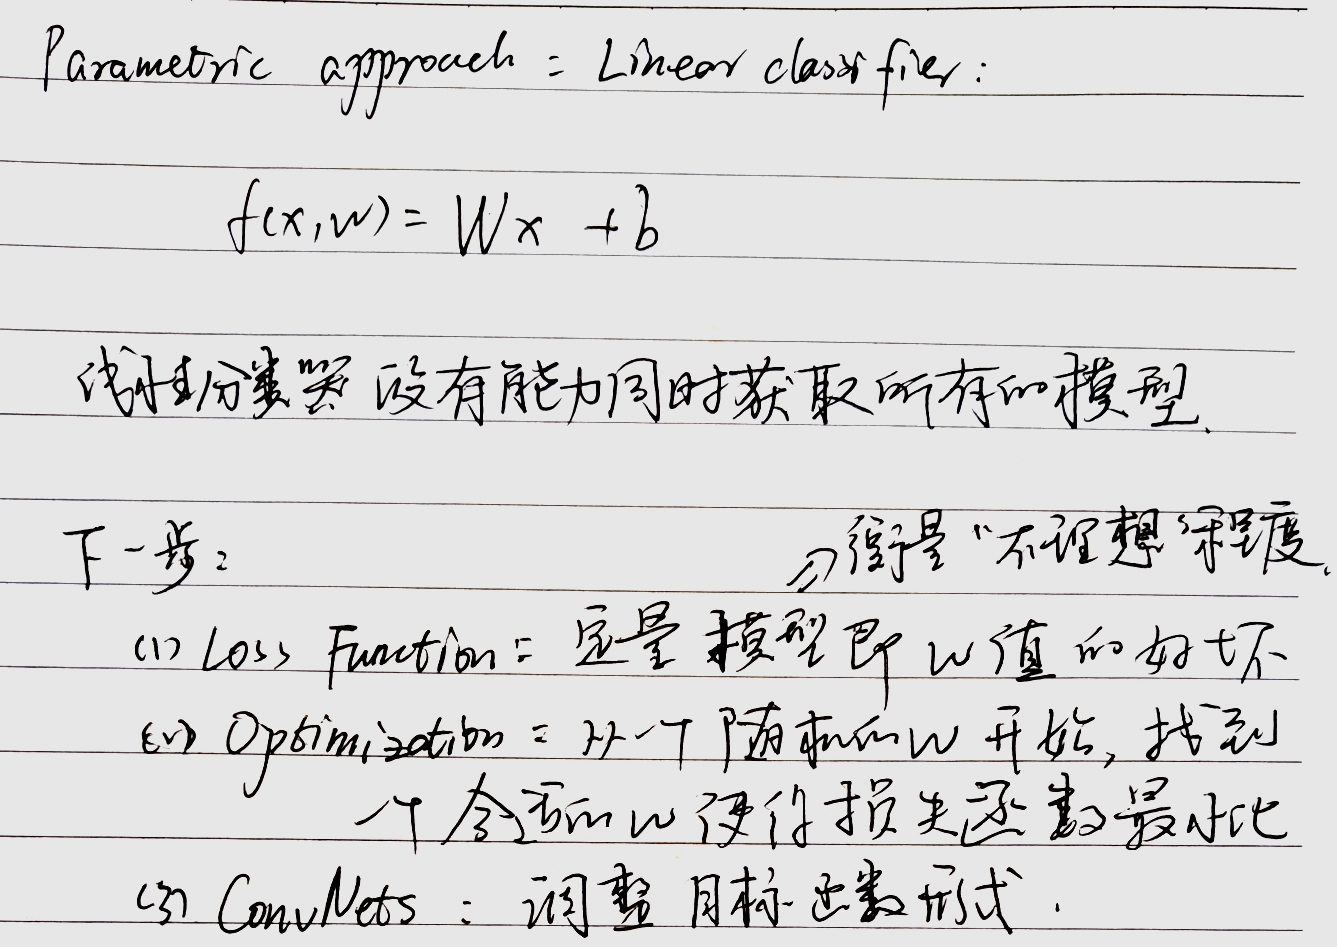 Parametric approach: Linear classifier:
f(x,w)= Wx +b
线性分类器没有能力同时获取所有的模型.
下一步:
→衡量“不理想”程度.
(1) Loss Function: 定量模型即W值的好坏
(2) Optimization: 从一个随机的W开始, 找到
一个合适的W使得损失函数最小化
(3) ConvNets: 调整目标函数形式.